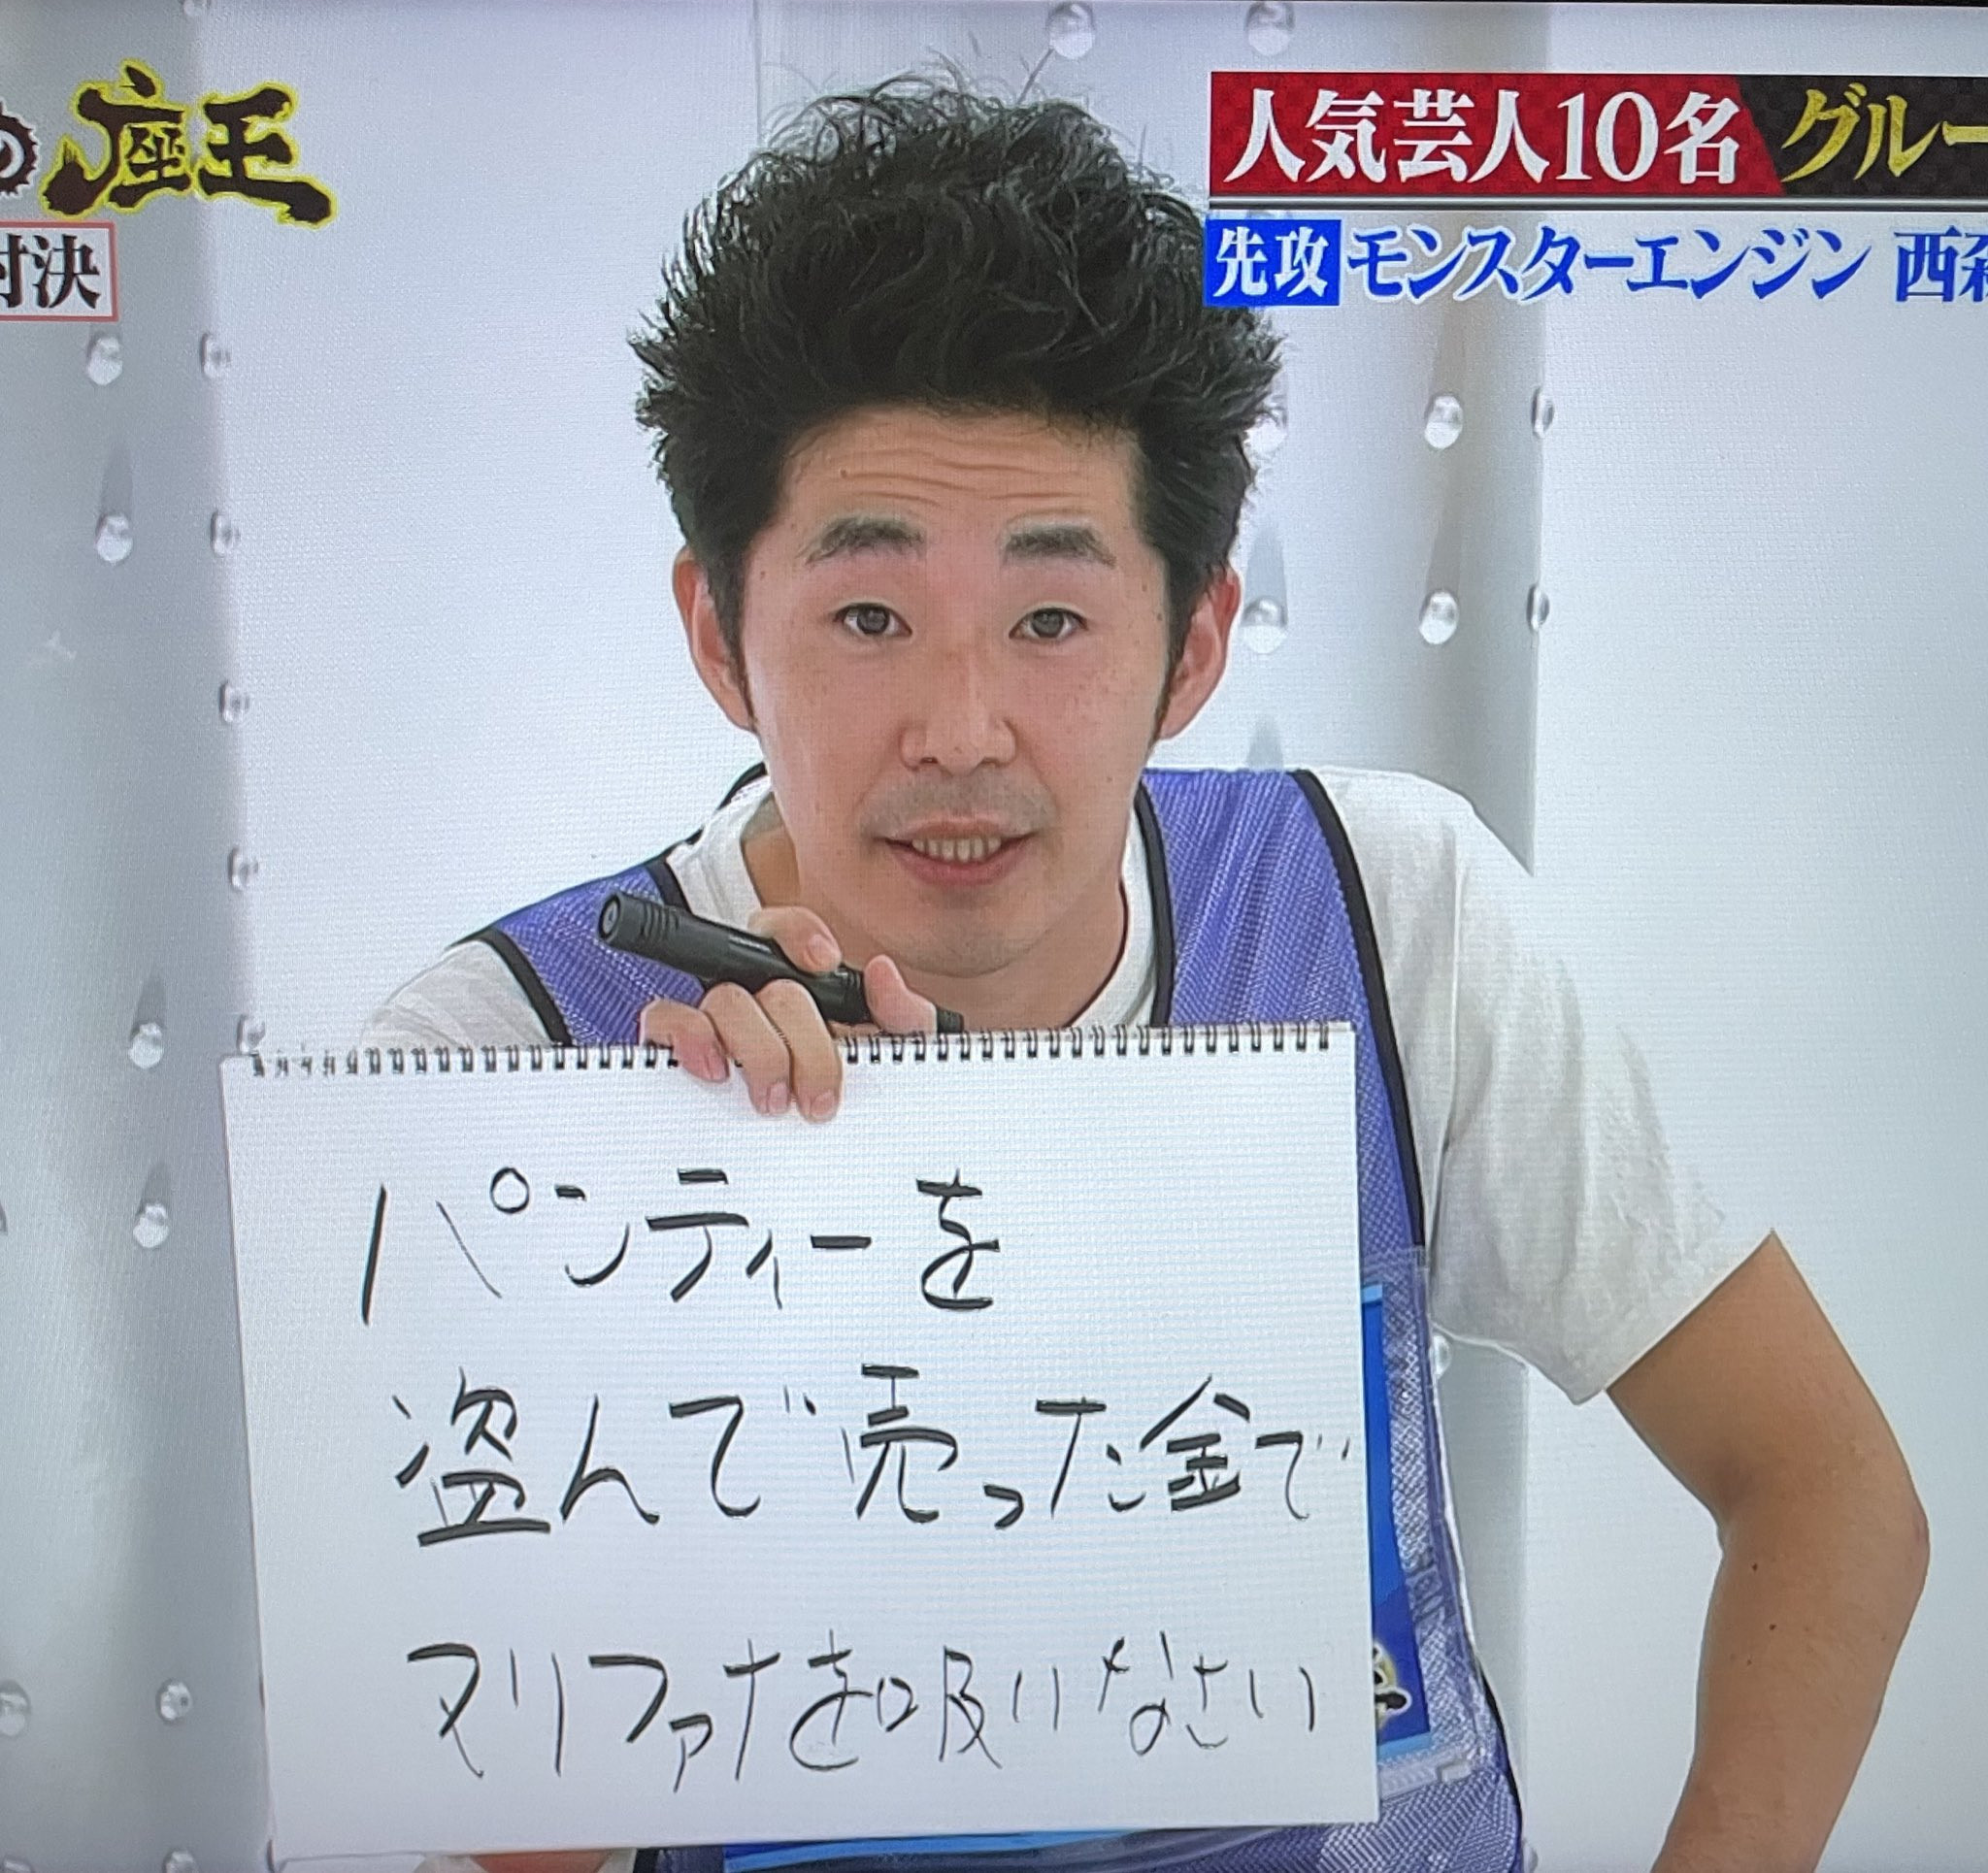 の座王
対決
人気芸人10名 グルー
先攻 モンスターエンジン 西森
パンティーを
盗んで売った金で
マリファナを吸いなさい